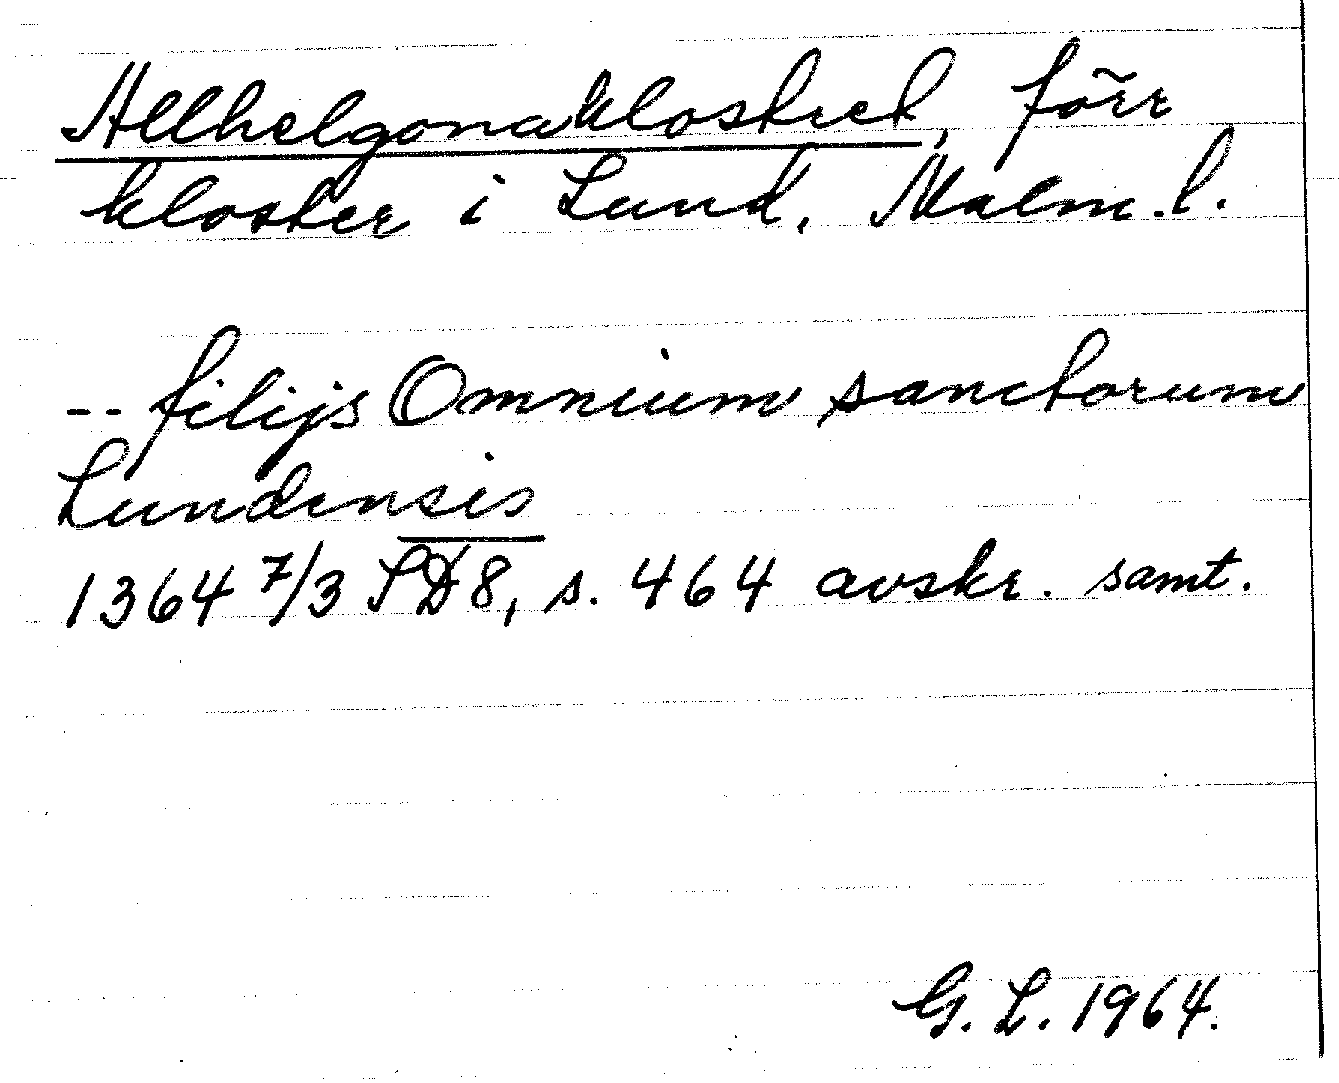 Allhelgonaklostret, förr
kloster i Lund, Malm. l.
-- filijs Omnium sanctorum
Lundensis
1364 7/3 SD8, s. 464 avskr. samt.
G. L. 1964.